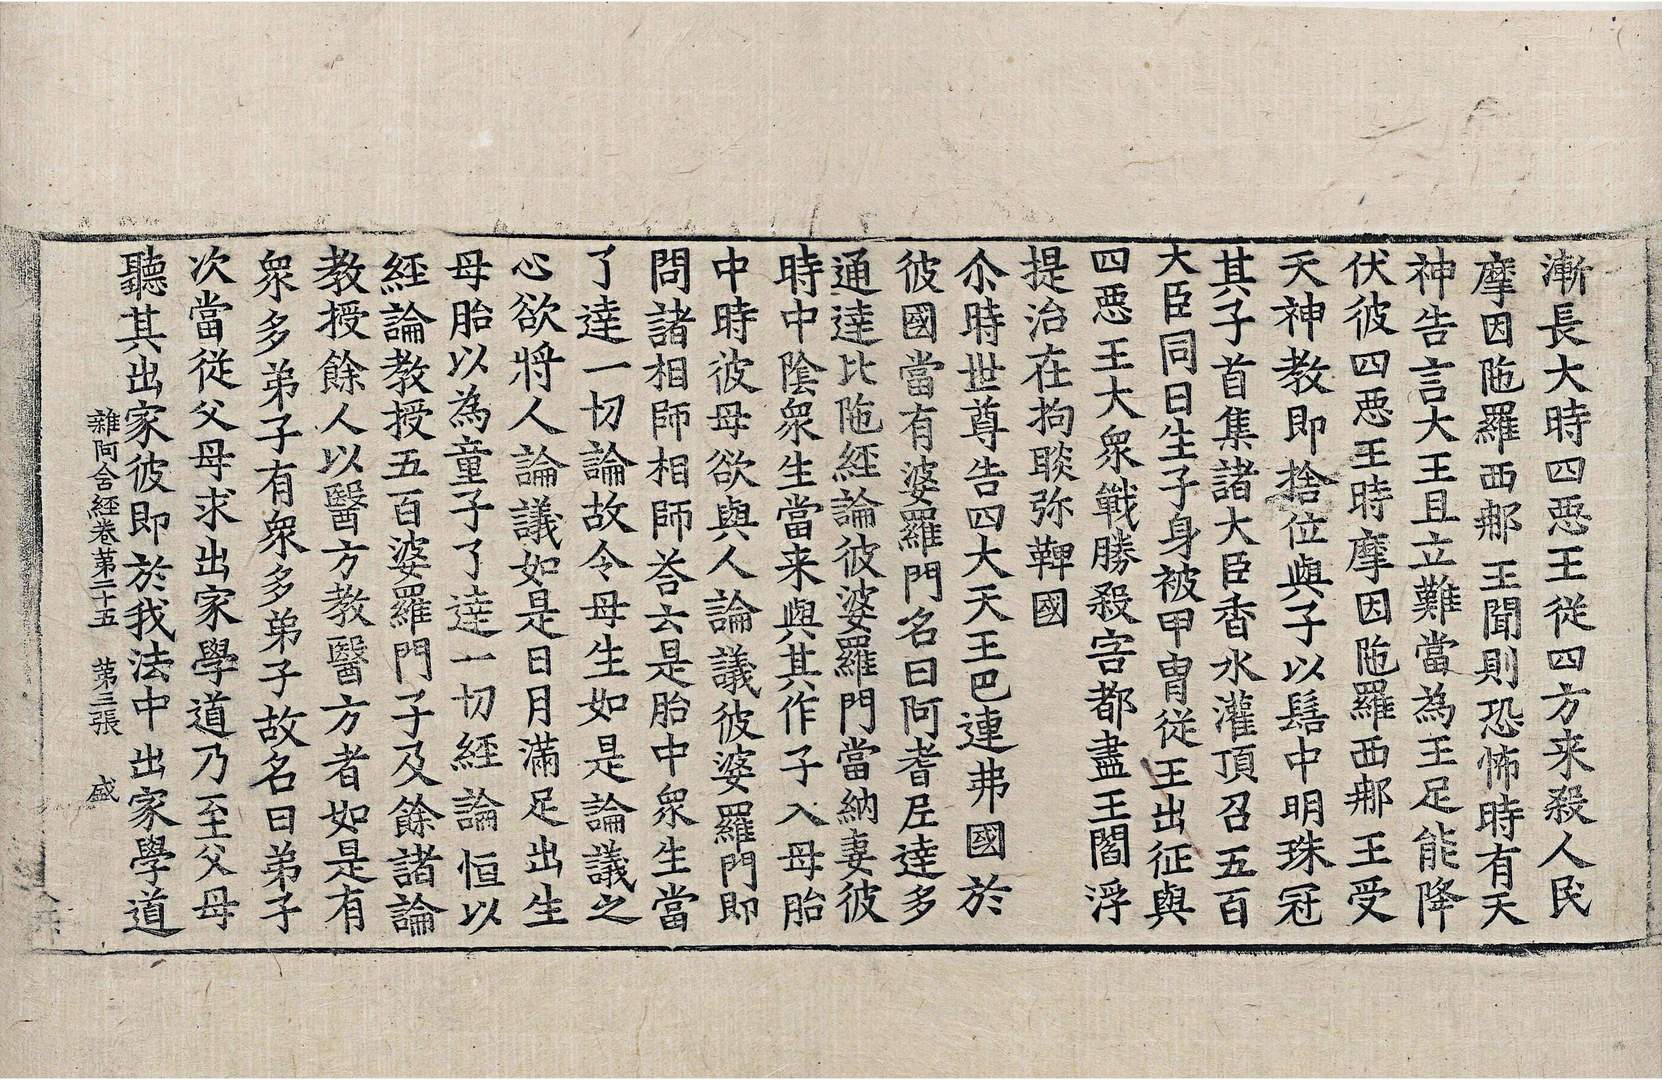 漸長大時四惡王從四方来殺人民
摩因陁羅西䣯王聞則恐怖時有天
神告言大王且立難當為王足能降
伏彼四惡王時摩因陁羅西䣯王受
天神教即捨位與子以髻中明珠冠
其子首集諸大臣香水灌頂召五百
大臣同日生子身被甲冑從王出征與
四惡王大衆戰勝殺害都盡王閻浮
提治在拘睒弥鞞國
尒時世尊告四大天王巴連弗國於
彼國當有婆羅門名曰阿耆尼達多
通達比陁經論彼婆羅門當納妻彼
時中陰衆生當来與其作子入母胎
中時彼母欲與人論議彼婆羅門即
問諸相師相師荅云是胎中衆生當
了達一切論故令母生如是論議之
心欲将人論議如是日月滿足出生
母胎以為童子了達一切經論恒以
經論教授五百婆羅門子及餘諸論
教授餘人以醫方教醫方者如是有
衆多弟子有衆多弟子故名曰弟子
次當從父母求出家學道乃至父母
聽其出家彼即於我法中出家學道
雜阿含經卷第二十五 第三張 盛